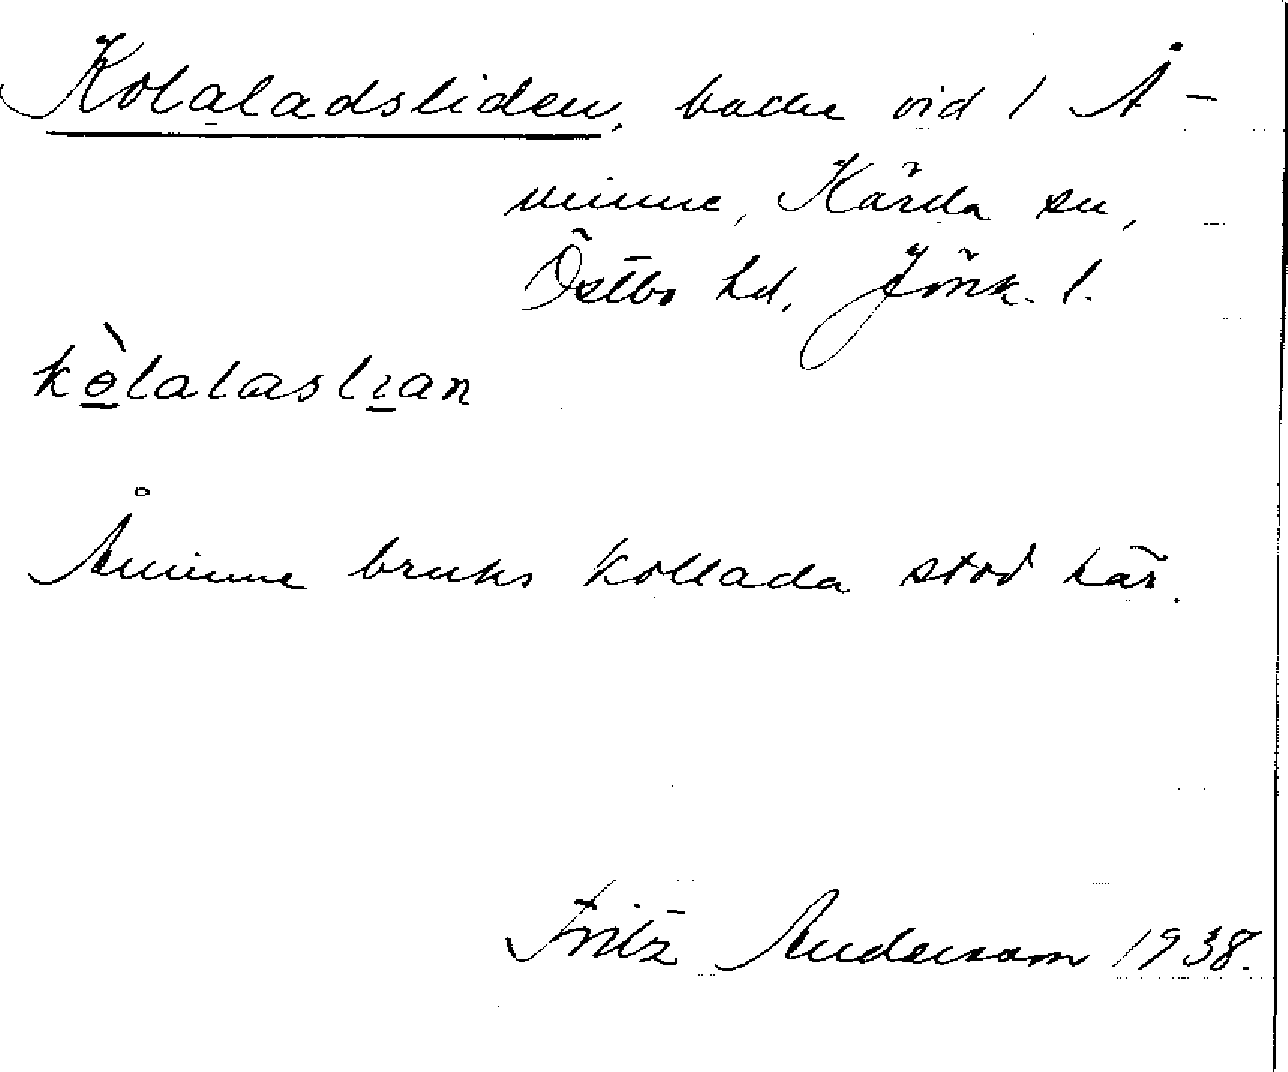 Kolaladsliden, backe vid 1 Å-
minne, Kärda sn,
Östbo hd, Jönk. l.
kòlalaslian
Åminne bruks kollada stod här.
Fritz Anderson 1938.